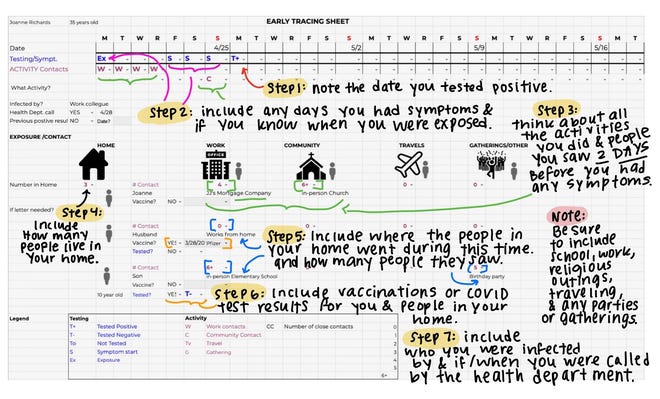 Joanne Richards 35 years old EARLY TRACING SHEET
M T W T F S S M T W T F S S M T W T F S S M T W T F S S
Date 4/25 5/2 5/9 5/16
Testing/Sympt. Ex S S S T+
ACTIVITY Contacts W W W W C
What Activity?
Step 1: note the date you tested positive.
Infected by? Work collegue
Health Dept. call YES - 4/28
Previous positve resul NO - Date?
Step 2: include any days you had symptoms &
if you know when you were exposed.
Step 3:
think about all
the activities
you did & people
you saw 2 DAYS
before you had
any symptoms.
EXPOSURE /CONTACT HOME WORK COMMUNITY TRAVELS GATHERINGS/OTHER
OFFICE
Number in Home 3 - # Contact 4 - 6+ - 0 - 0 -
Joanne JJ's Mortgage Company in-person Church
Vaccine? NO -
If letter needed?
Step 4:
Include
How many
people live in
your home.
# Contact 0 -
Husband Works from home
Vaccine? YE! - 3/28/20 Pfizer
Tested? NO -
Step 5: Include where the people in
your home went during this time.
and how many people they saw.
# Contact 6+
Son in-person Elementary School Birthday party
Vaccine? NO -
10 year old Tested? YE! - T-
Step 6: Include vaccinations or COVID
test results for you & people in your
home.
Note:
Be sure
to include
school, work,
religious
outings,
traveling,
& any parties
or gatherings.
Legend Testing Activity
T+ Tested Positive W Work contacts CC Number of close contacts 0
T- Tested Negative C Community Contact 1
To Not Tested Tv Travel 2
S Symptom start G Gathering 3
Ex Exposure 4
5
6+
Step 7: include
who you were infected
by & if/when you were called
by the health department.